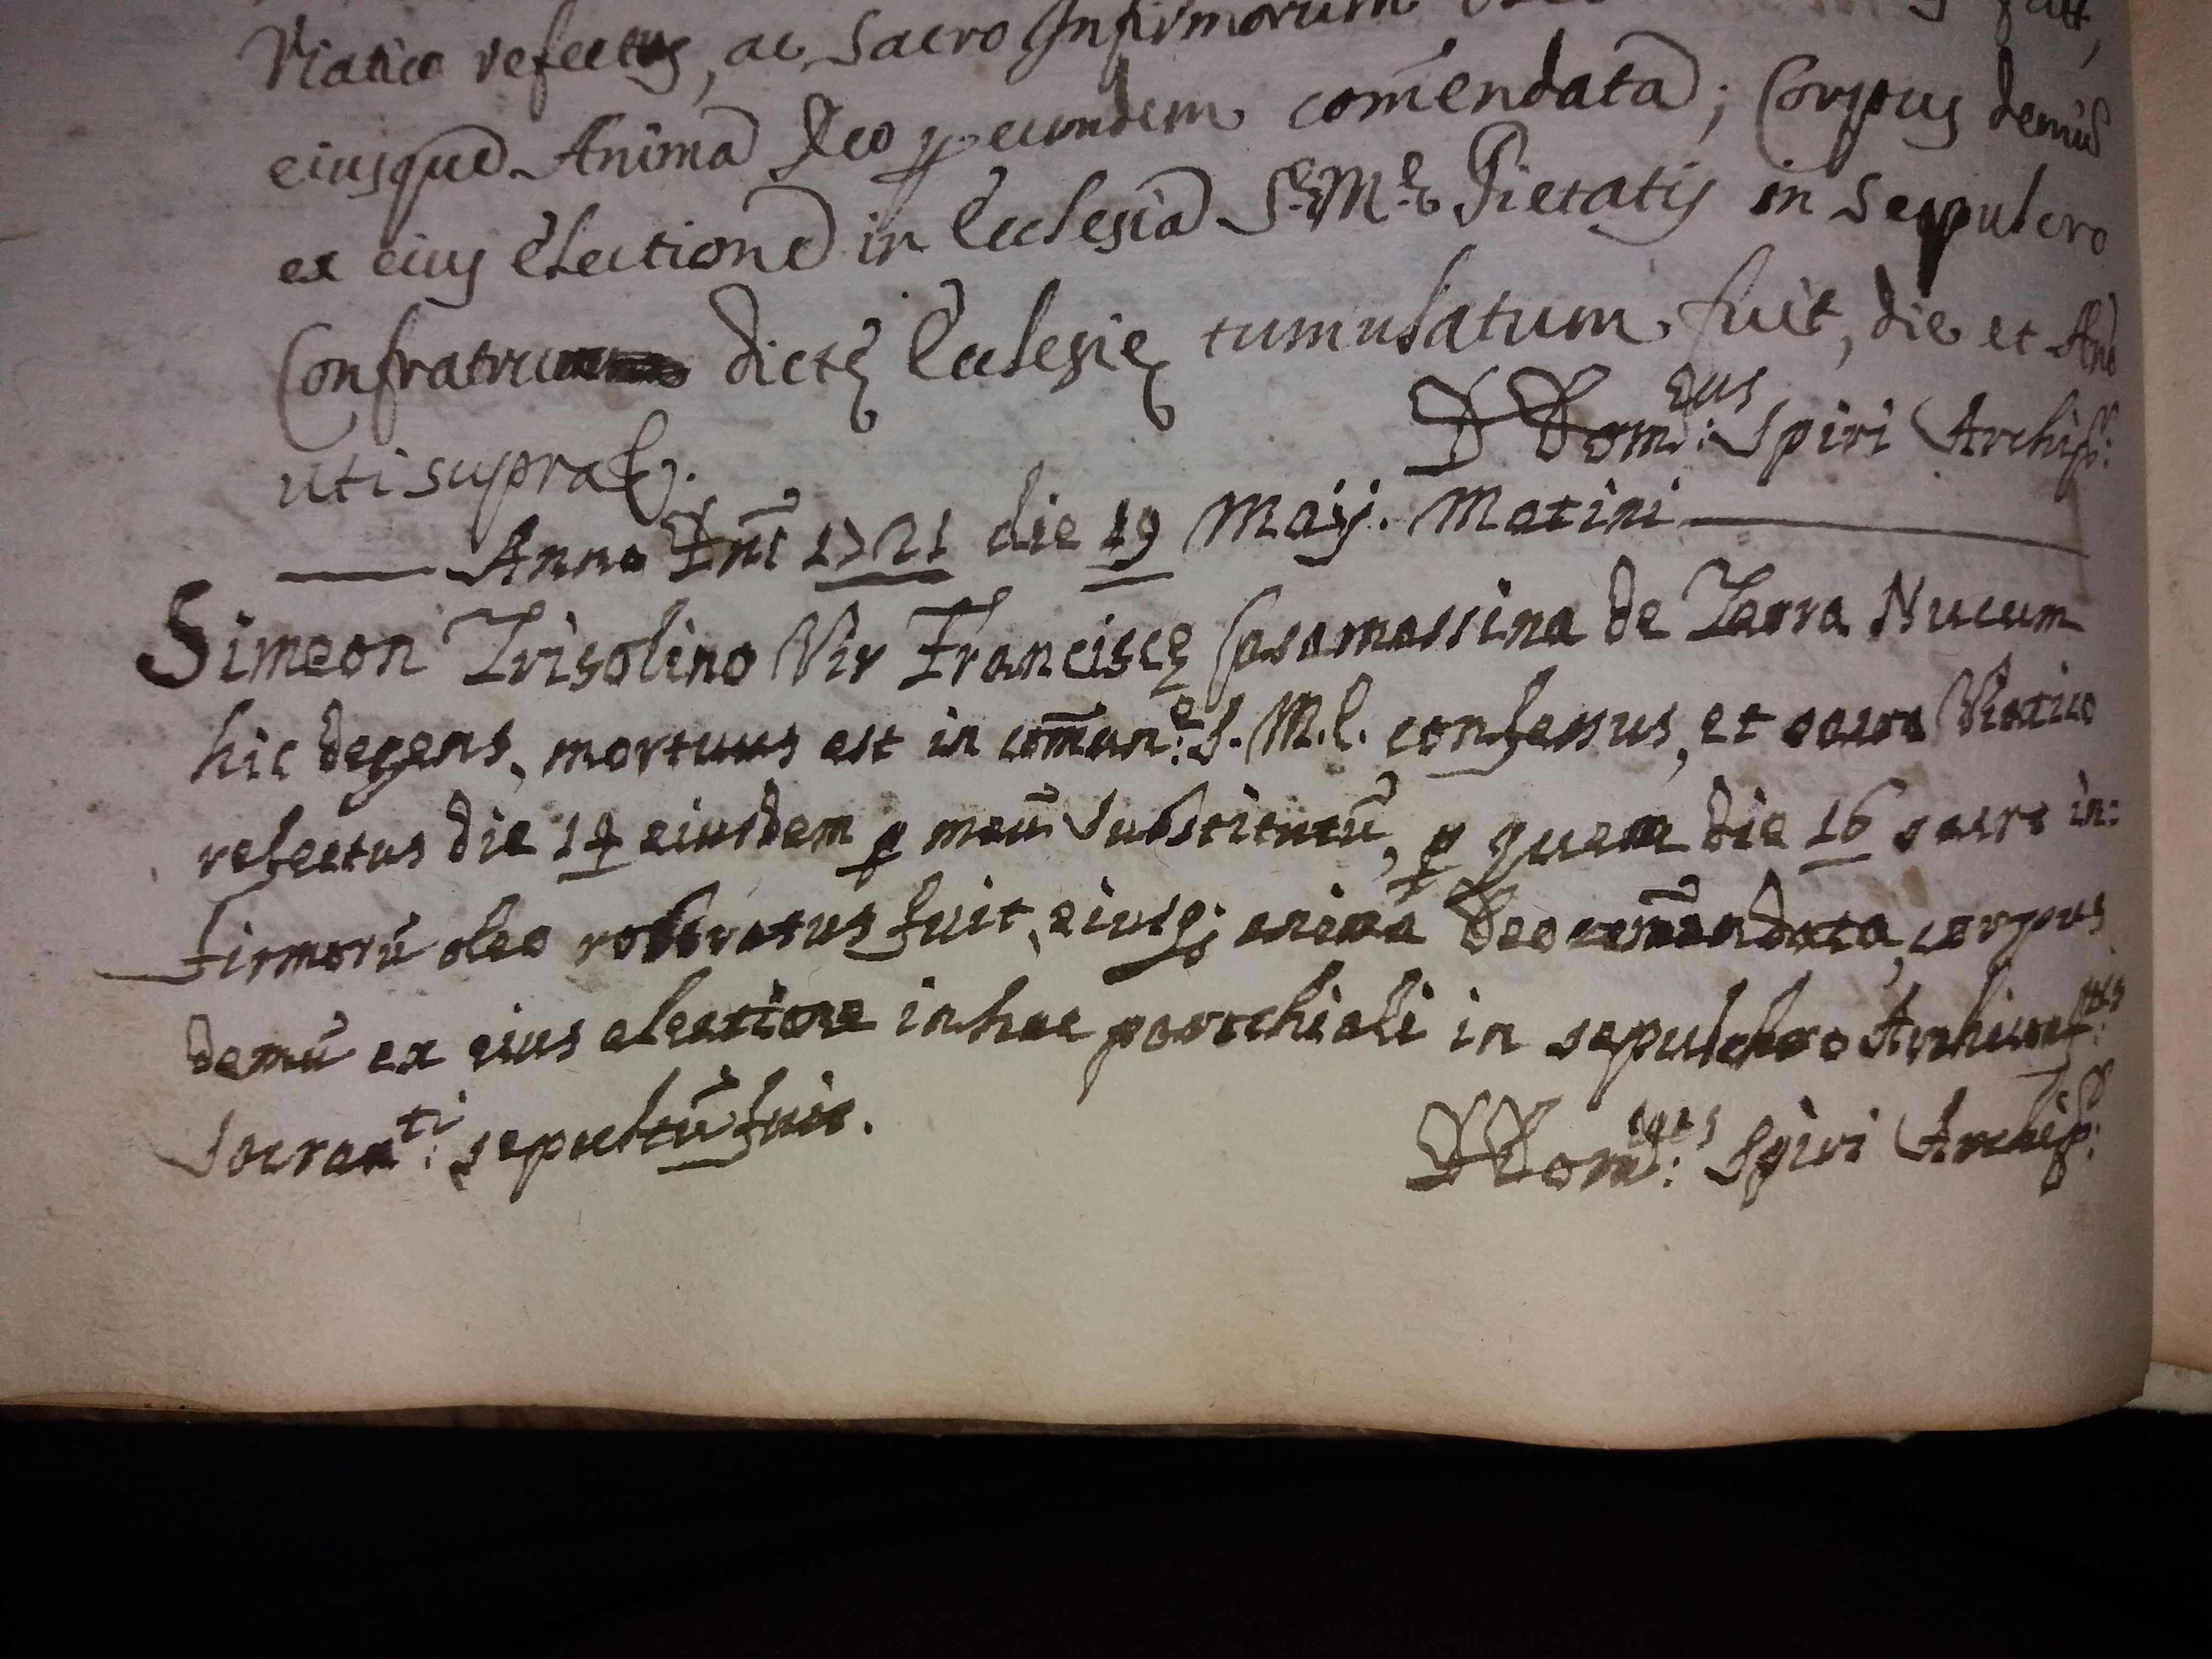 Viatico refectus, ac Sacro Infirmorum
eiusque Anima Deo p eumdem comendata; Corpus demũ
ex eius electione in Ecclesia S.e M.e Pietatis in Sepulcro
Confratrum dictę Ecclesię tumulatum fuit, die et Año
uti supra.
D Dom.cus Spiri Archip.r
Anno Dni 1721 die 19 Maij. Matini
Simeon Trisolino Vir Franciscę Casamassina de Terra Nucum
hic degens, mortuus est in comun.e S. M. E. confessus, et sacro Viatico
refectus die 14 eiusdem p meũ Substitutũ, p quem die 16 sacro in:
firmorũ oleo roboratus fuit, eiusq; anima Deo comendata, corpus
demũ ex eius electione in hac parochiali in sepulchro Archiconf.tis
Sacram.ti sepultũ fuit.
D Dom.cus Spiri Archip.r